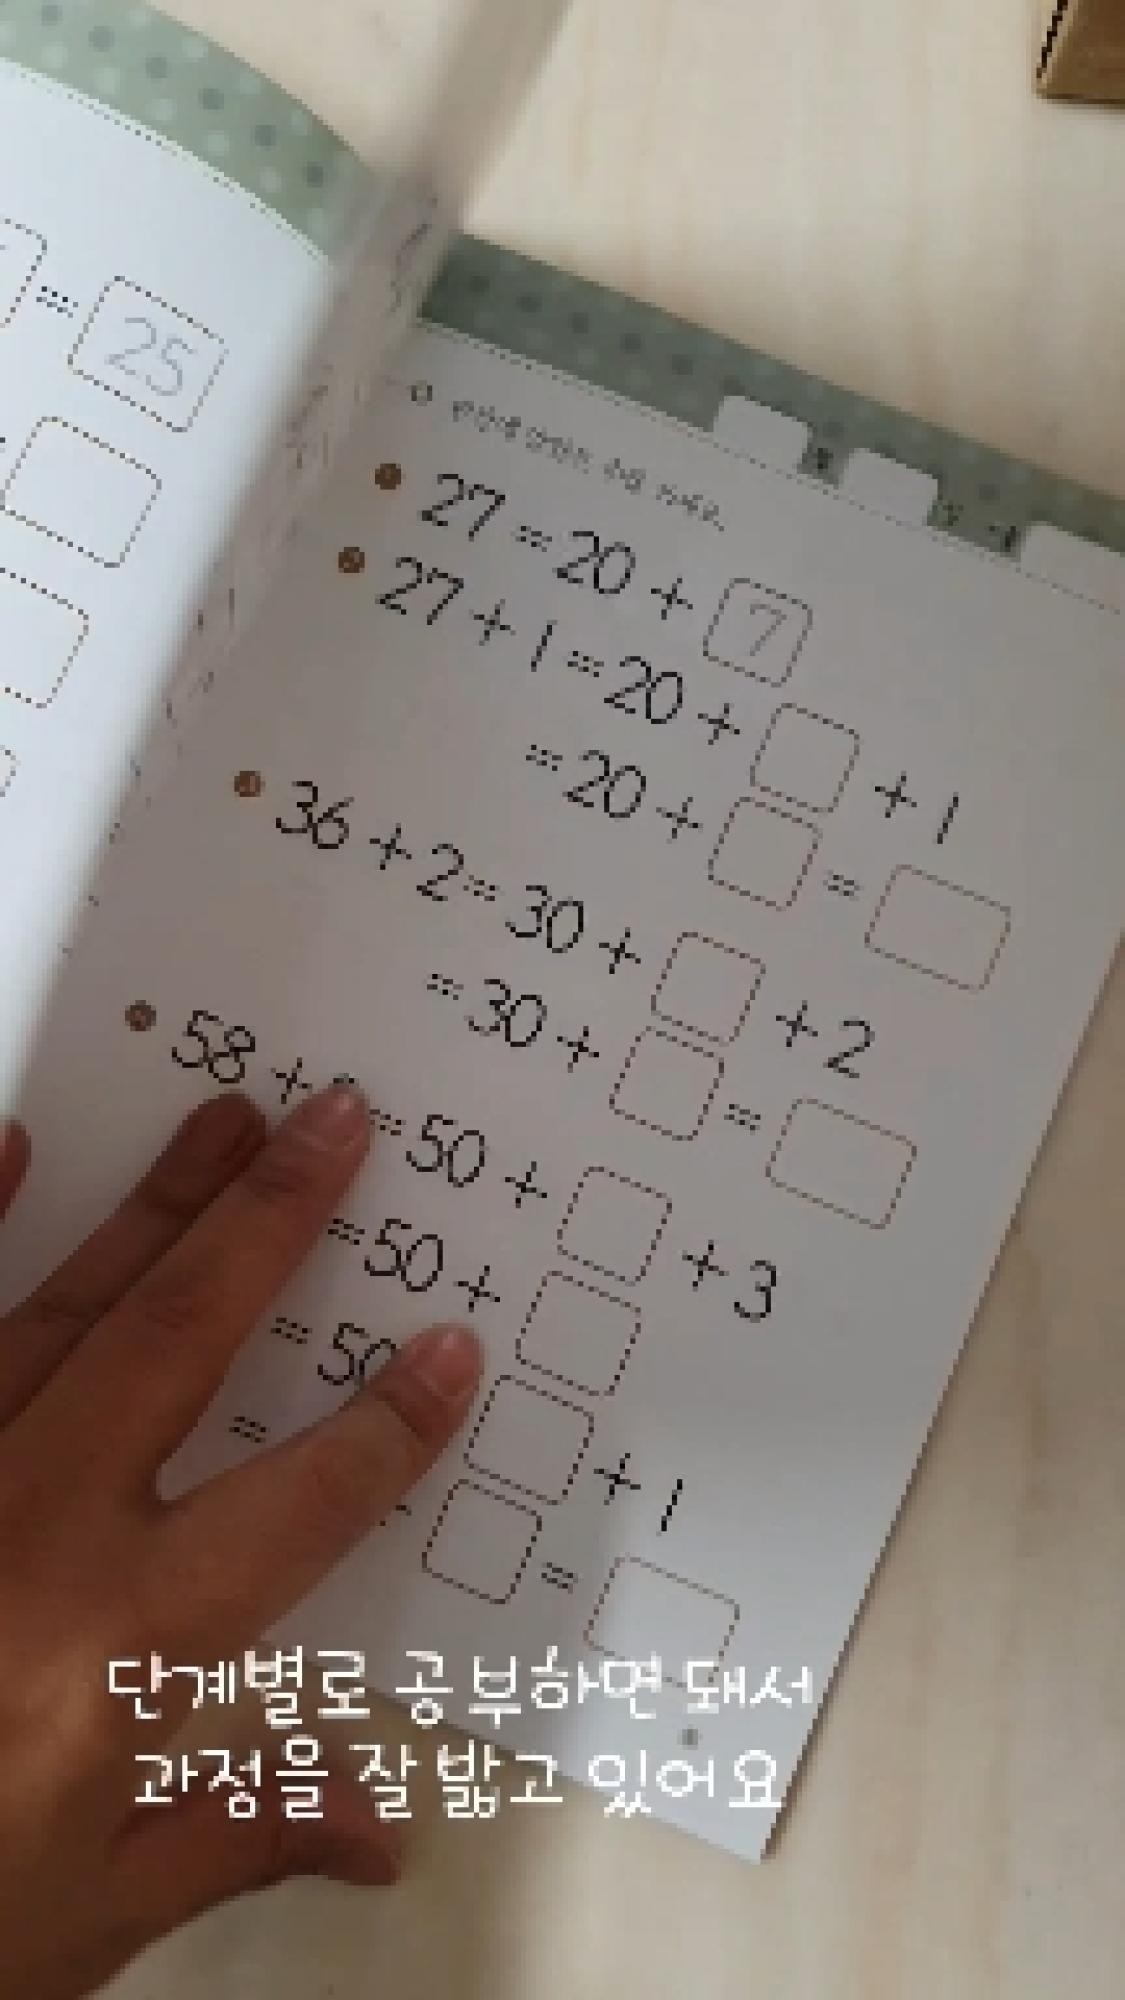 = 25
27 = 20 + 7
27 + 1 = 20 + + 1
= 20 + =
36 + 2 = 30 + + 2
= 30 + =
58 + = 50 + + 3
= 50 +
= 50 + 1
=
=
단계별로 공부하면 돼서
과정을 잘 밟고 있어요